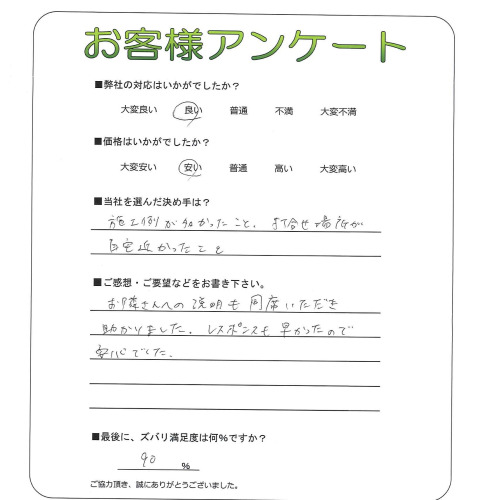 お客様アンケート
■弊社の対応はいかがでしたか？
大変良い 良い 普通 不満 大変不満
■価格はいかがでしたか？
大変安い 安い 普通 高い 大変高い
■当社を選んだ決め手は？
施工例が多かったこと、打合せ場所が
自宅近かったこと
■ご感想・ご要望などをお書き下さい。
お隣さんへの説明も同席いただき
助かりました。レスポンスも早かったので
安心でした。
■最後に、ズバリ満足度は何％ですか？
90 %
ご協力頂き、誠にありがとうございました。